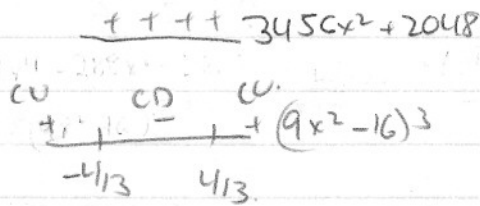 ++++ 3456x² + 2048
CU CD CU.
+ - + (9x² - 16)³
-4/3 4/3.